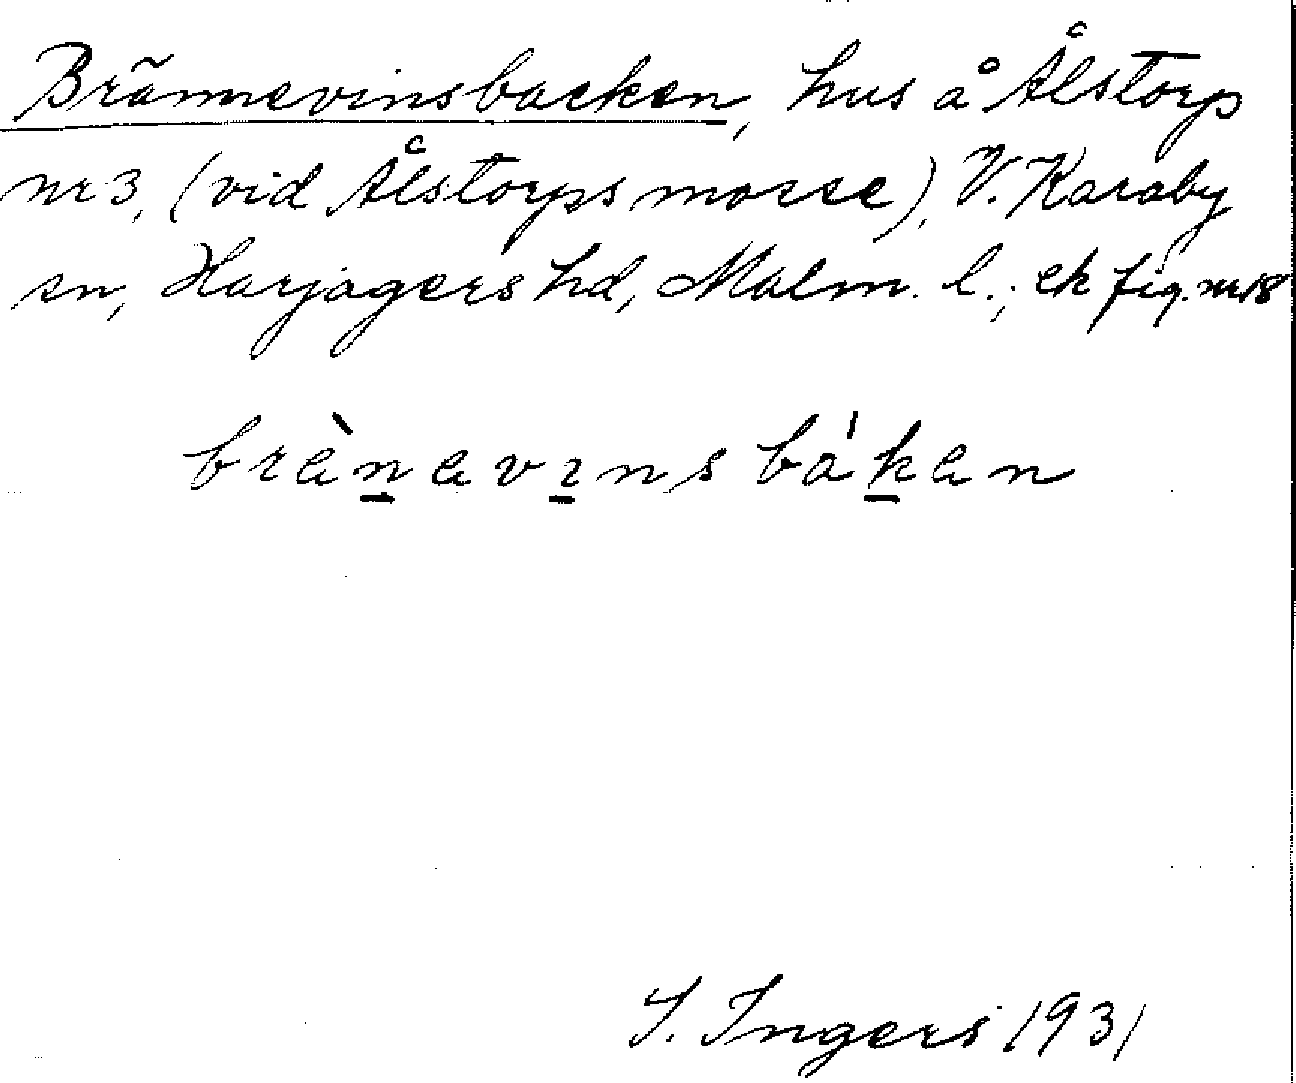 Brännevinsbacken, hus å Ålstorp
nr 3, (vid Ålstorps mosse), V. Karaby
sn, Harjagers hd, Malm. l.; ek fig. nr 18
brènevinsbáken
I. Ingers 1931